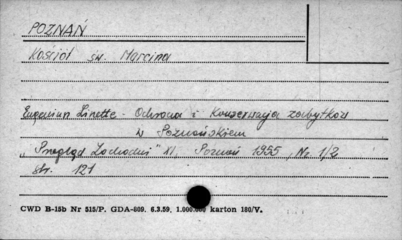 POZNAŃ
Kościół św. Marcina
Eugeniusz Linette - Ochrona i Konserwacja zabytków
w Poznańskiem
"Przegląd Zachodni" XI, Poznań 1955, Nr. 1/2
str. 121
CWD B-15b Nr 515/P. GDA-609. 6.3.59. 1.000.000 karton 180/V.